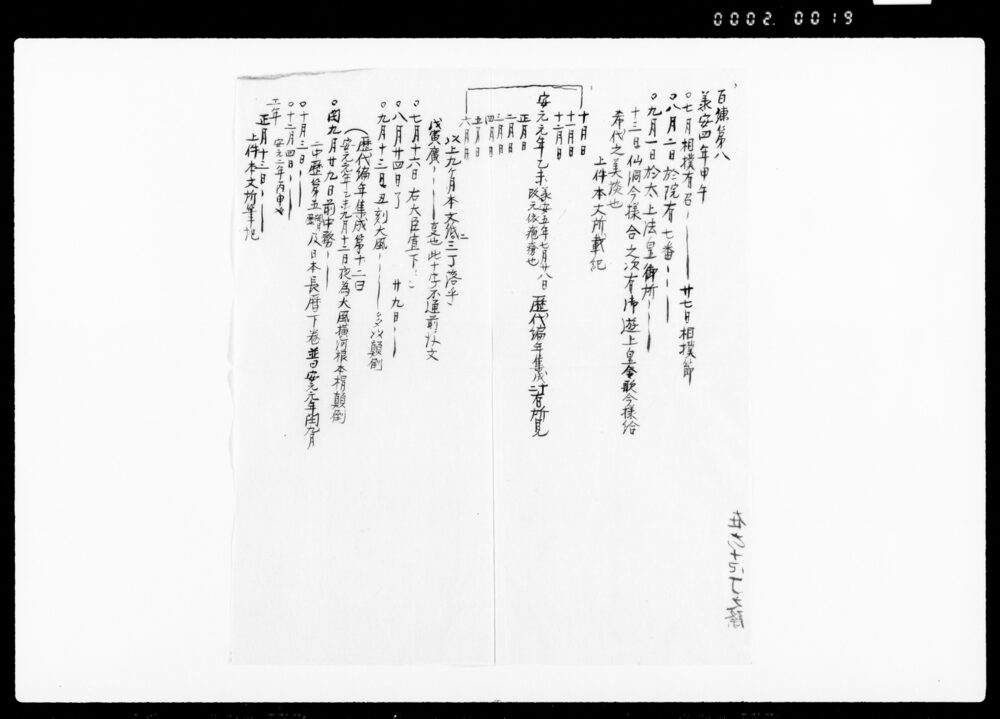 0002.0019
百練第八
承安四年甲午
○七月相撲有召——廿七日相撲節
○八月二日於院有七番——
○九月一日於太上法皇御所——
十三日仙洞今様合之次有御遊上皇令歌今様給
希代之美談也
上件本文所載記
十月日
十一月日
十二月日
安元元年乙未 承安五年七月廿八日改元依疱瘡也 歴代編年集成ニ有所見
正月日
二月日
三月日
四月日
五月日
六月日
以上九ヶ月本文紙二三丁落乎
戊寅廣——変也此十字不通前後文
○七月十六日右大臣宣下——
○八月廿四日了 廿九日——
○九月十三日丑刻大風——多以顛倒
歴代編年集成第十二曰
安元元年乙未九月十二日夜為大風横河根本椙顛倒
○閏九月廿九日前中務——
二中歴第五 及日本長暦下巻並曰安元元年閏九月
○十月三日——
○十二月四日——
二年 安元二年丙申也
正月十三日——
上件本文所筆記